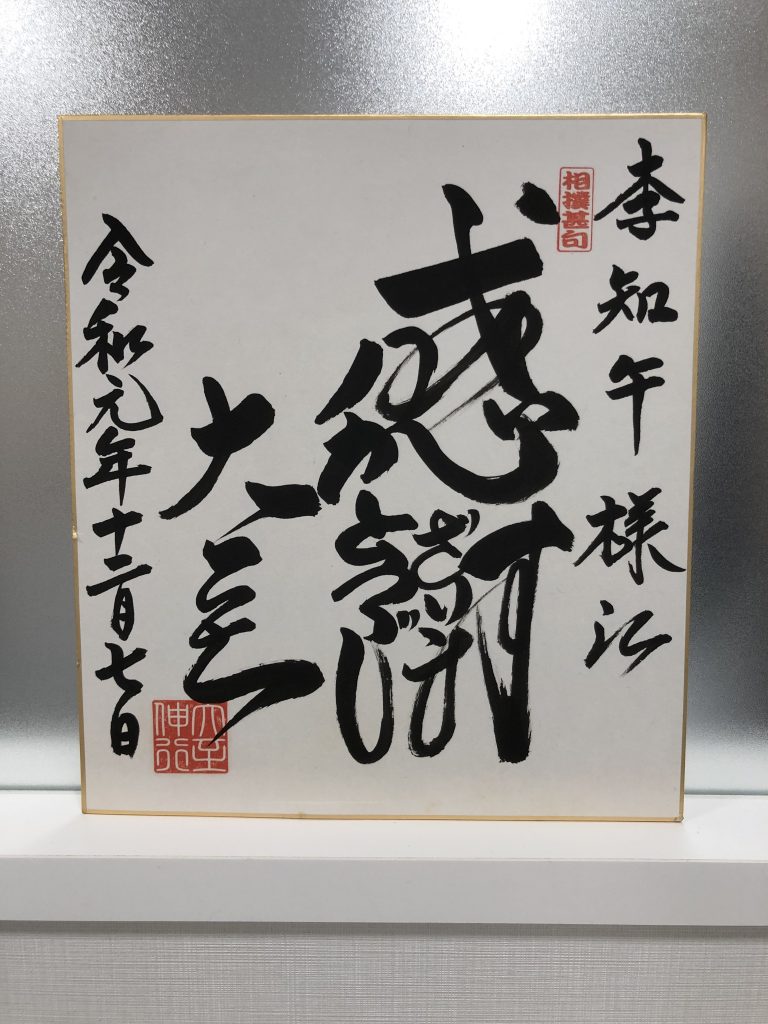 李知午様江
相撲甚句
感謝
大至
令和元年十二月七日
大至
伸行